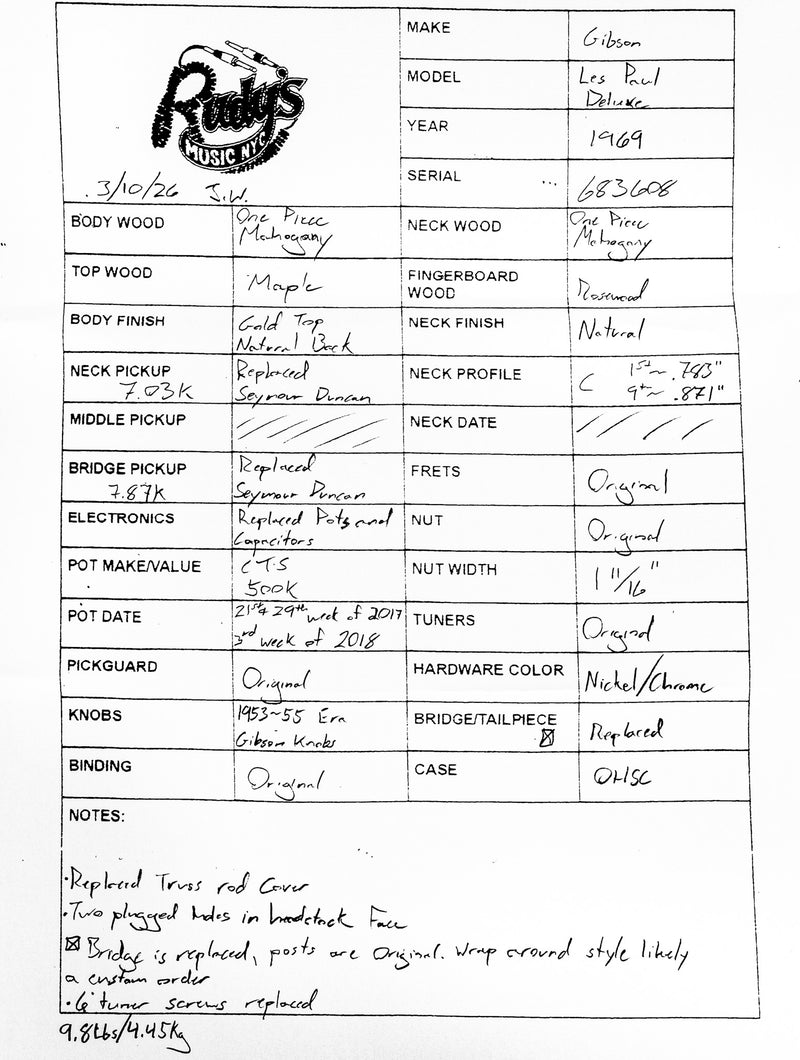 Rudy's
MUSIC NYC
3/10/26 J.W.
MAKE
Gibson
MODEL
Les Paul
Deluxe
YEAR
1969
SERIAL
683608
BODY WOOD
One Piece
Mahogany
NECK WOOD
One Piece
Mahogany
TOP WOOD
Maple
FINGERBOARD
WOOD
Rosewood
BODY FINISH
Gold Top
Natural Back
NECK FINISH
Natural
NECK PICKUP
7.03K
Replaced
Seymour Duncan
NECK PROFILE
C 1st~ .783"
9th~ .871"
MIDDLE PICKUP
NECK DATE
BRIDGE PICKUP
7.87K
Replaced
Seymour Duncan
FRETS
Original
ELECTRONICS
Replaced Pots and
Capacitors
NUT
Original
POT MAKE/VALUE
CTS
500K
NUT WIDTH
1 11/16"
POT DATE
21st & 29th week of 2017
3rd week of 2018
TUNERS
Original
PICKGUARD
Original
HARDWARE COLOR
Nickel/Chrome
KNOBS
1953~55 Era
Gibson Knobs
BRIDGE/TAILPIECE
☒
Replaced
BINDING
Original
CASE
OHSC
NOTES:
·Replaced Truss rod Cover
·Two plugged holes in headstock Face
☒ Bridge is replaced, posts are Original. Wrap around style likely
a custom order
·6 tuner screws replaced
9.8Lbs/4.45Kg